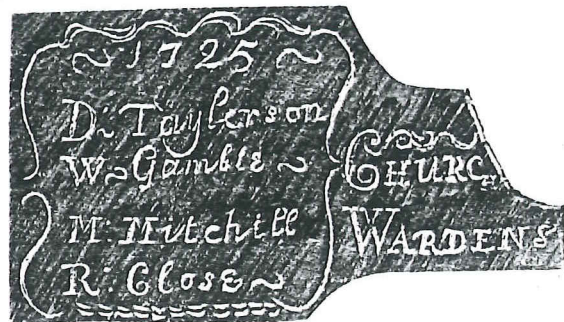 ~ 1725 ~
D: Taylerson
W~Gamble ~
M: Mitchill
R: Close~
CHURC
WARDENS